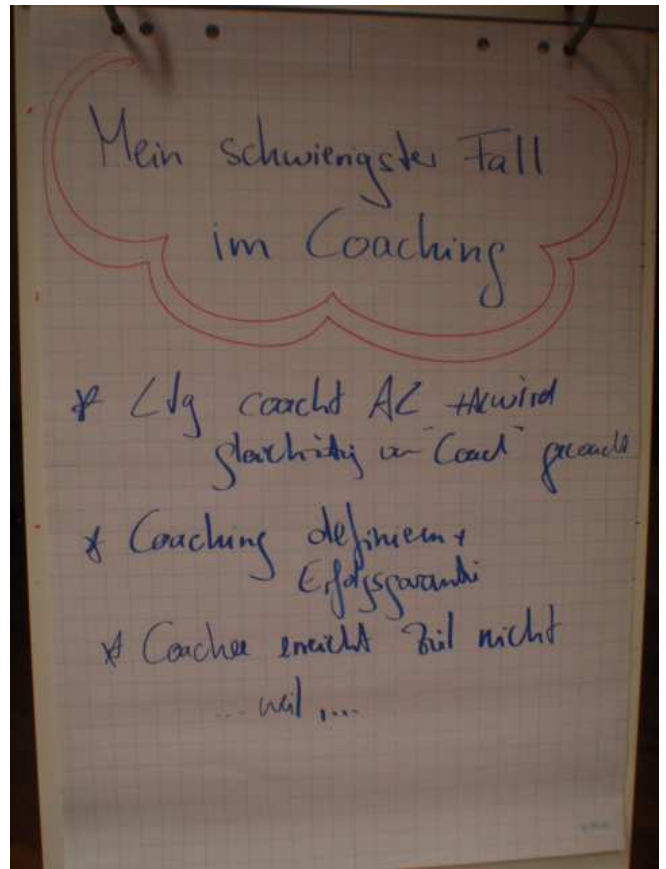 Mein schwierigster Fall
im Coaching
* Ldg coacht AL + AL wird
gleichzeitig von "Coach" gecoacht
* Coaching definieren +
Erfolgsgarantie
* Coachee erreicht Ziel nicht
... weil, ...